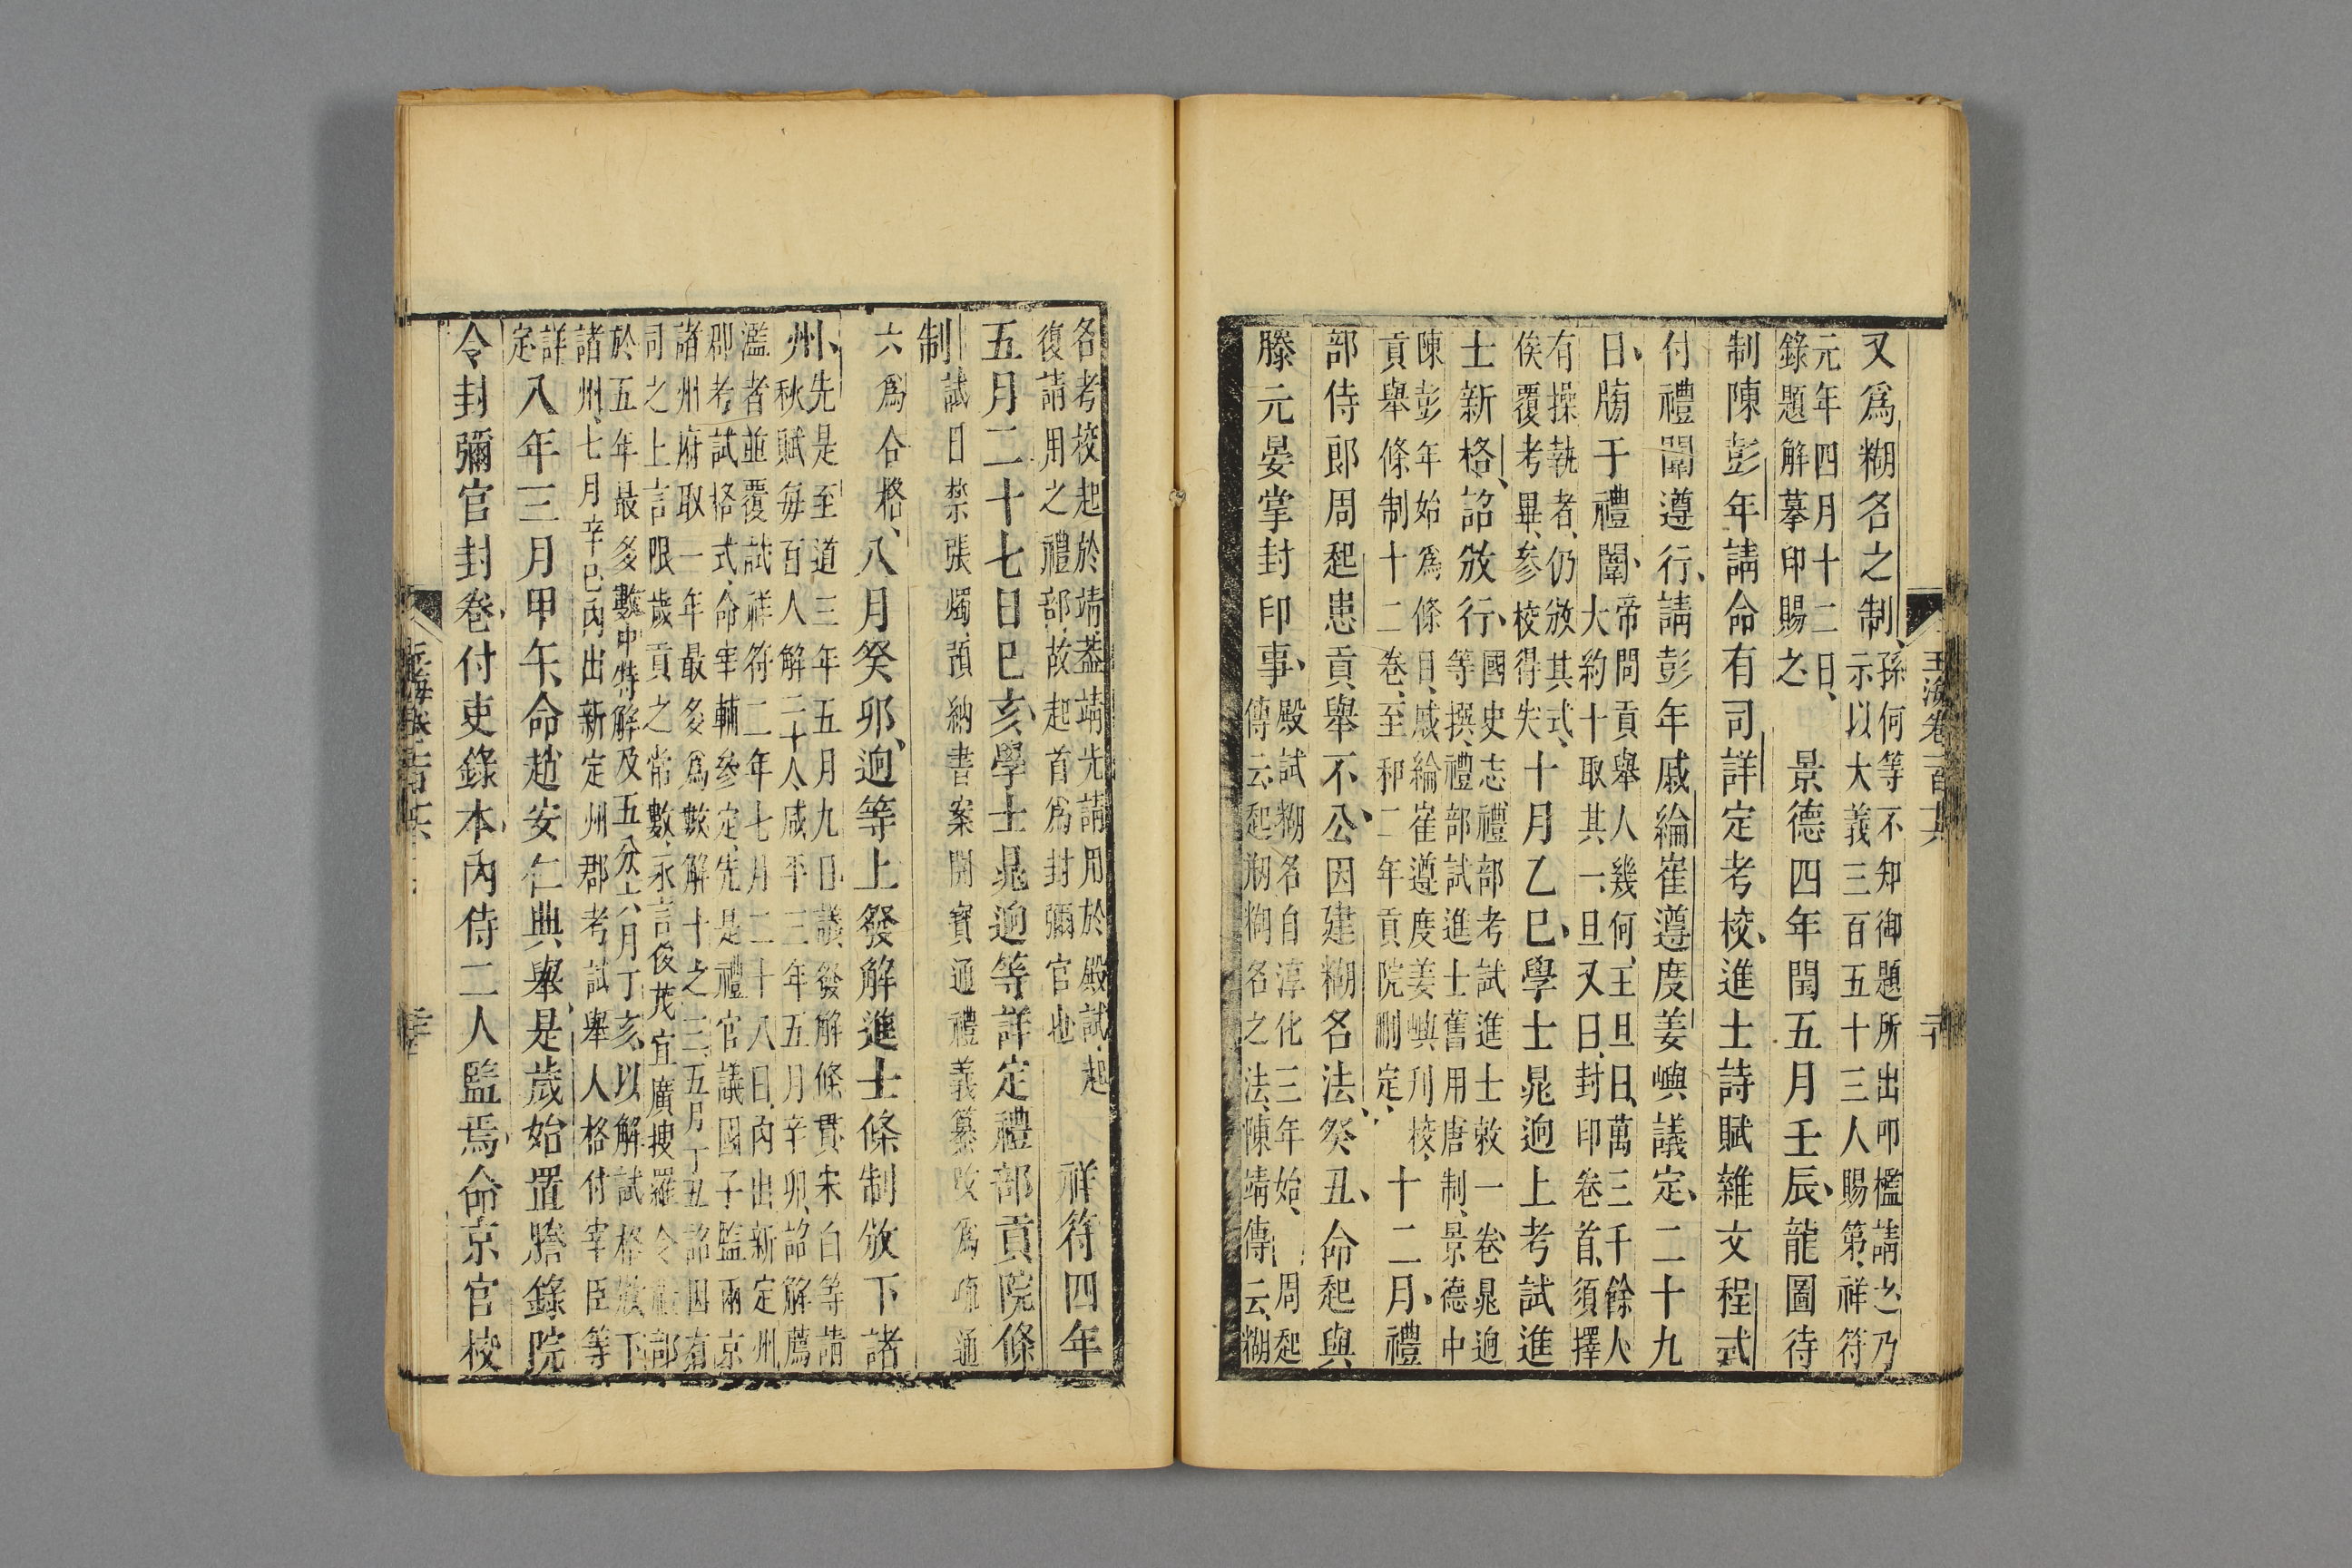 又爲糊名之制、孫何等不知御題所出叩檻請之乃
示以大義三百五十三人賜第、祥符
元年四月十二日、
錄題解摹印賜之
景德四年閏五月壬辰、龍圖待
制陳彭年請命有司詳定考校、進士詩賦雜文程式
付禮闈遵行、請彭年戚綸崔遵度姜嶼議定、二十九
日、牓于禮闈、帝問貢舉人幾何、王旦曰、萬三千餘人、
大約十取其一、旦又曰、封印卷首、須擇
有操執者、仍放其式、
俟覆考畢、參校得失
十月乙巳、學士晁迥上考試進
士新格、詔放行、國史志禮部考試進士敕一卷晁迥
等撰、禮部試進士舊用唐制、景德中
陳彭年始爲條目、戚綸崔遵度姜嶼刋校、
貢舉條制十二卷、至和二年貢院刪定、
十二月、禮
部侍郎周起患貢舉不公、因建糊名法、癸丑、命起與
滕元晏掌封印事、殿試糊名自淳化三年始、周起
傳云、起剏糊名之法、陳靖傳云、糊
名考校起於靖蓋靖先請用於殿試、起
復請用之禮部、故起首爲封彌官也
祥符四年
五月二十七日己亥、學士晁迥等詳定禮部貢院條
制試日禁張燭、預納書案開寶通禮義纂改爲疏通
六爲合格、八月癸卯、迥等上發解進士條制放下諸
州、先是至道三年五月九日議發解條貫宋白等請
州秋賦每百人解二十人、咸平三年五月辛卯、詔解薦
濫者並覆試祥符二年七月二十八日、內出新定州
郡考試格式、命宰輔參定、先是禮官議國子監兩京
諸州府取一年最多爲數解十之三、五月丁丑詔因有
司之上言限歲貢之常數、永言俊茂宜廣搜羅令禮部
於五年最多數中特解及五分六月丁亥、以解試格放下
諸州、七月辛巳內出新定州郡考試舉人格付宰臣等
詳
定
八年三月甲午、命趙安仁典舉、是歲始置謄錄院
令封彌官封卷、付吏錄本、內侍二人監焉、命京官校
玉海卷一百十六